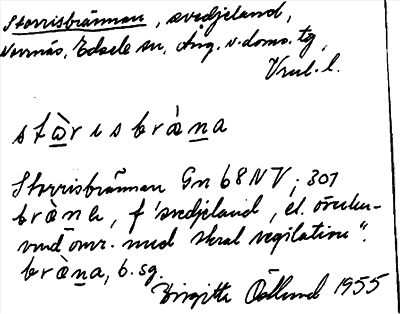 Storrisbrännan, svedjeland,
Norrnäs, Edsele sn, Ång. v. doms. tg,
Vrul. l.
stòrisbrǹna
Storrisbrännan Gn 68 NV; 301
bràna, f 'svedjeland, el.
område med skral vegitation".
bràna, b. sg.
Birgitta Ödlund 1955